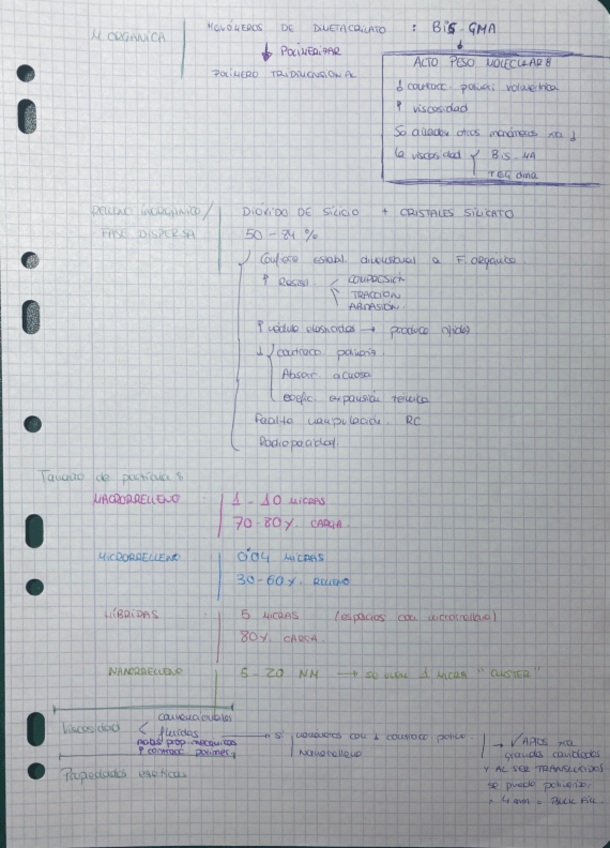 M. ORGÁNICA
MONÓMEROS DE DIMETACRILATO : BIS-GMA
↓ POLIMERIZAR
POLÍMERO TRIDIMENSIONAL
ALTO PESO MOLECULAR
↓ contracc. polimeri volumétrica
↑ viscosidad
Se añaden otros monómeros xa ↓
la viscosidad
Bis-MA
TEG dma
RELLENO INORGÁNICO /
FASE DISPERSA
DIÓXIDO DE SILICIO + CRISTALES SILICATO
50 - 84 %
Confiere estabil. dimensional a F. orgánica
↑ Resist
COMPRESIÓN
TRACCIÓN
ABRASIÓN
↑ módulo elasticidad → produce rigidez
↓ contracc polimeriz.
Absorc. acuosa
coefic. expansión térmica
Facilita manipulación. RC
Radiopacidad.
Tamaño de partículas
MACRORRELLENO
1 - 10 MICRAS
70-80% CARGA
MICRORRELLENO
0'04 MICRAS
30-60% RELLENO
HÍBRIDAS
5 MICRAS (espacios con microrrelleno)
80% CARGA.
NANORRELLENO
5 - 20 NM → se unen 1 MICRA "CLUSTER"
Viscosidad
convencionales
fluidas
malas prop. mecánicas
↑ contracc polimeri
→ Si
monómeros con ↓ contracc polim.
Nanorelleno
→ ✓ APTOS xa
grandes cavidades
Y AL SER TRANSLÚCIDOS
se puede polimerizar
4 mm = BULK FILL.
Propiedades estéticas